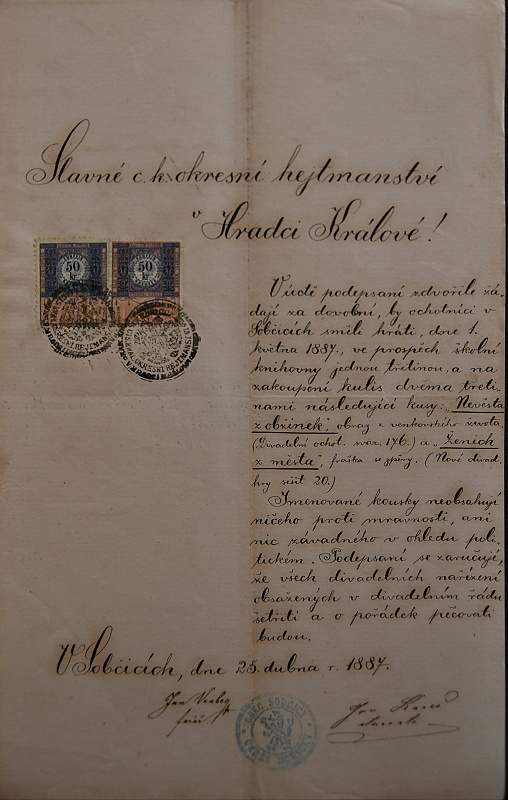 Slavné c. k. okresní hejtmanství
v
Hradci Králové!
50
kr
50
kr
V úctě podepsaní zdvořile žá-
dají za dovolení, by ochotníci v
Sobčicích směli hráti, dne 1.
května 1887., ve prospěch školní
knihovny jednou třetinou, a na
zakoupení kulis dvěma třeti-
nami následující kusy: „Nevěsta
z obžinek", obraz z venkovského života.
(Divadelní ochot. svaz. 176.) a „Ženich
z města", fraška se zpěvy. (Nové divad.
hry sešit 20.)
Jmenované kousky neobsahují
ničeho proti mravnosti, ani
nic závadného v ohledu poli-
tickém. Podepsaní se zaručují,
že všech divadelních nařízení
obsažených v divadelním řádu
šetřiti a o pořádek pečovati
budou.
V Sobčicích, dne 25. dubna r. 1887.
Jan
Jan
OBEC SOBČICE